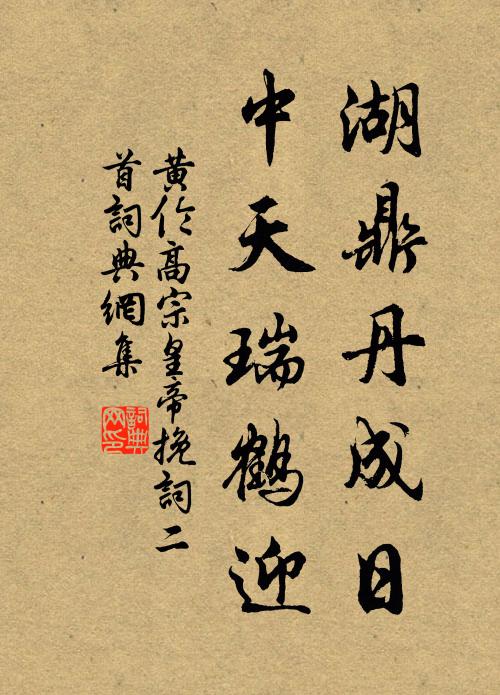 湖鼎丹成日
中天瑞鶴迎
黃高宗皇帝挽詞二
首詞典網集
詞典网印